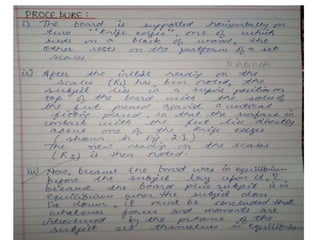 PROCEDURE:
i) The board is supported horizontally on
two "knife edges", one of which
rests on a block of wood, the
other rests on the platform of a set
scales.
RABIYA
ii) After the initial reading on the
scales (R1) has been noted, the
subject lies in a supine position on
top of the board with the soles of
the feet pressed against a vertical
so that the surface in
contact with the feet lie directly
above one of the knife edges
(shown in Fig 2.1)
The new reading on the scales
(R2) is then noted.
iii) Now, because the board was in equilibrium
before the subject lay upon it, &
because the board plus subject is in
equilibrium when the subject does
lie down, it must be concluded that
whatever forces and moments are
introduced by the presence of the
subject are themselves in equilibrium